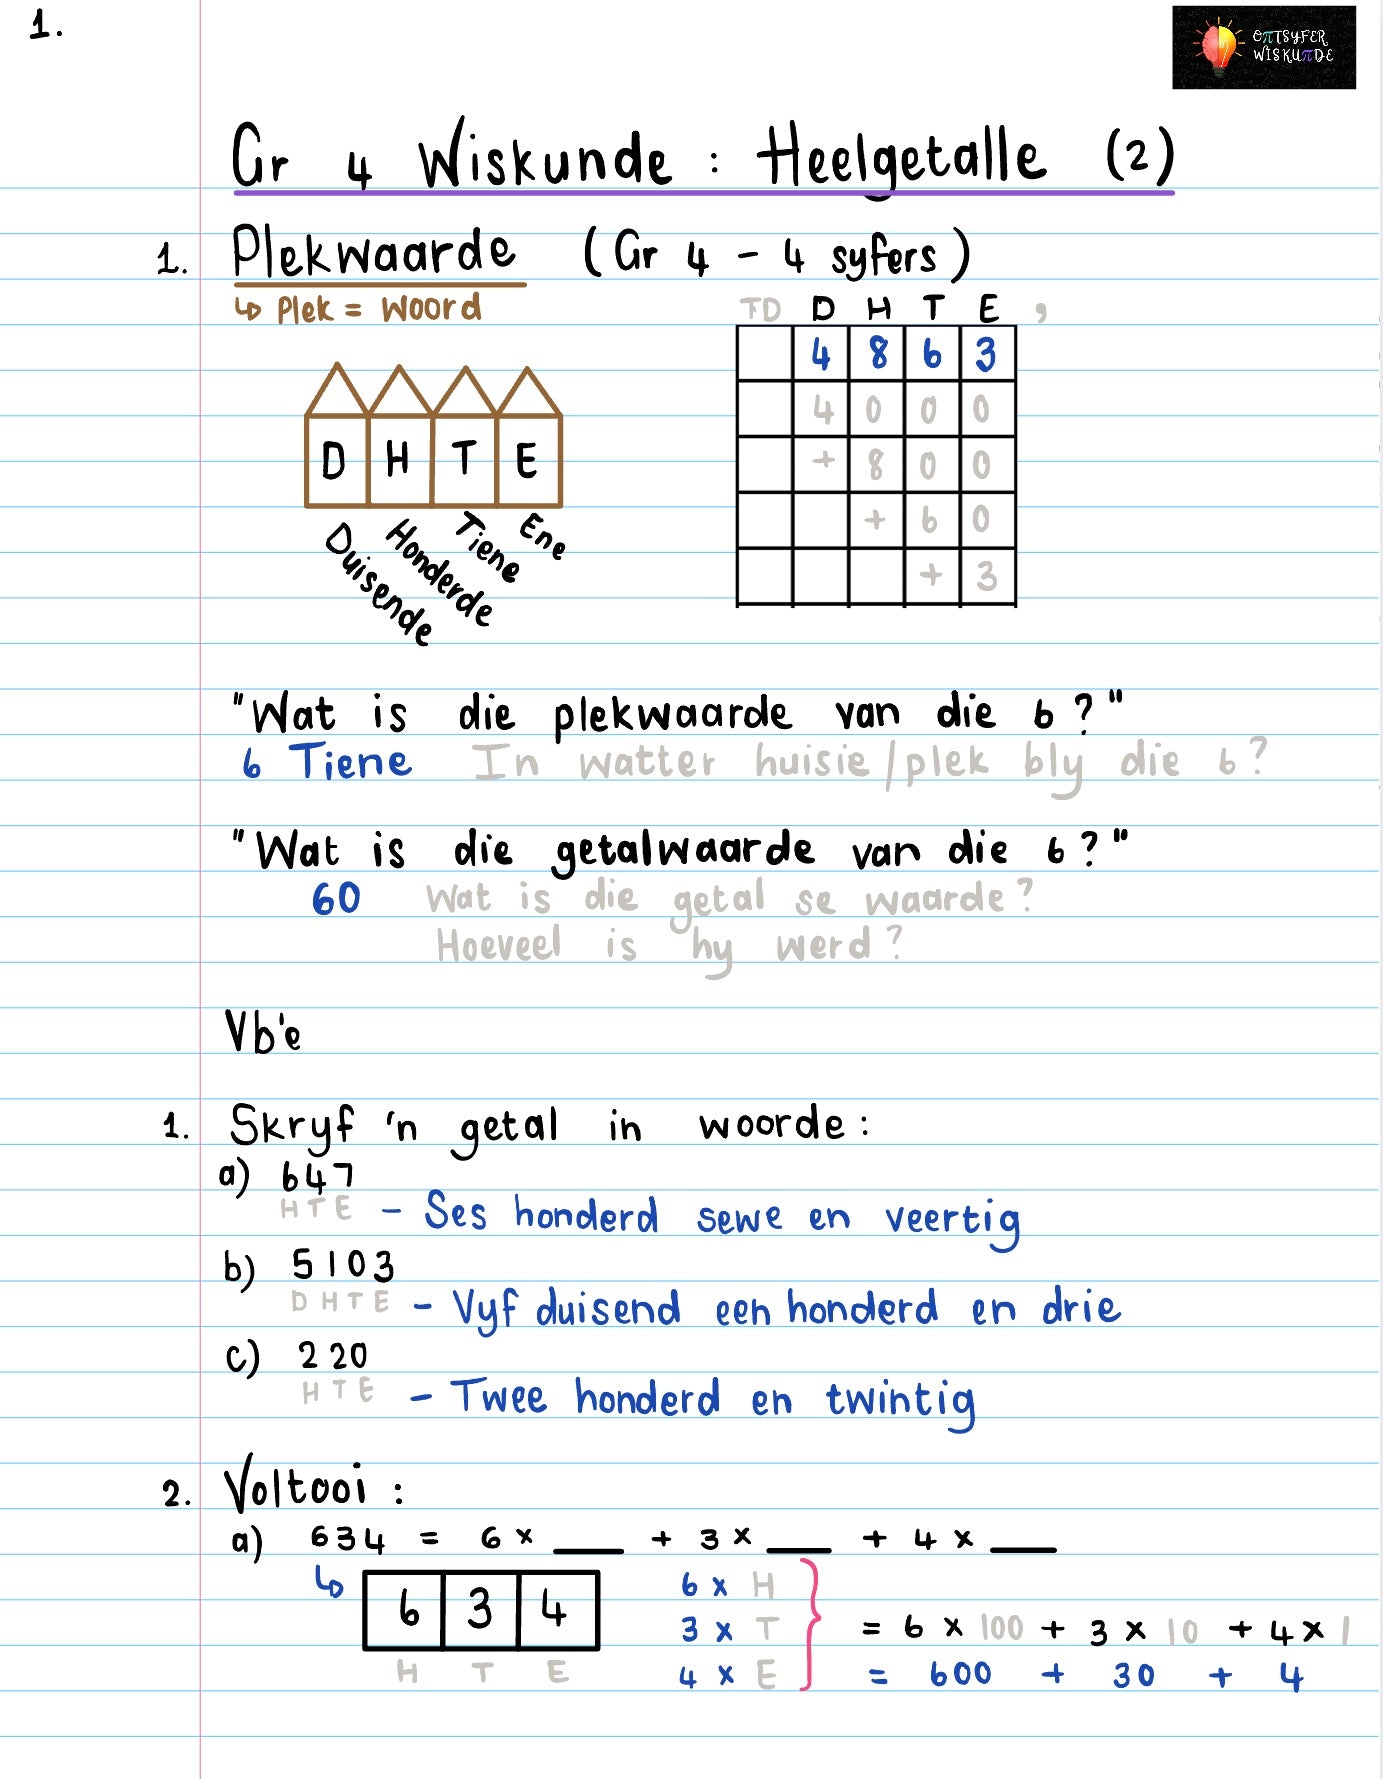 1.
OπTSYFER
WISKUπDE
Gr 4 Wiskunde : Heelgetalle (2)
1. Plekwaarde (Gr 4 - 4 syfers)
↳ Plek = Woord
TD D H T E ,
4 8 6 3
4 0 0 0
+ 8 0 0
+ 6 0
+ 3
D H T E
Duisende Honderde Tiene Ene
"Wat is die plekwaarde van die 6?"
6 Tiene In watter huisie/plek bly die 6?
"Wat is die getalwaarde van die 6?"
60 Wat is die getal se waarde?
Hoeveel is hy werd?
Vb'e
1. Skryf 'n getal in woorde:
a) 647
H T E - Ses honderd sewe en veertig
b) 5103
D H T E - Vyf duisend een honderd en drie
c) 220
H T E - Twee honderd en twintig
2. Voltooi :
a) 634 = 6 × ___ + 3 × ___ + 4 × ___
↳ 6 3 4
H T E
6 × H
3 × T
4 × E
= 6 × 100 + 3 × 10 + 4 × 1
= 600 + 30 + 4